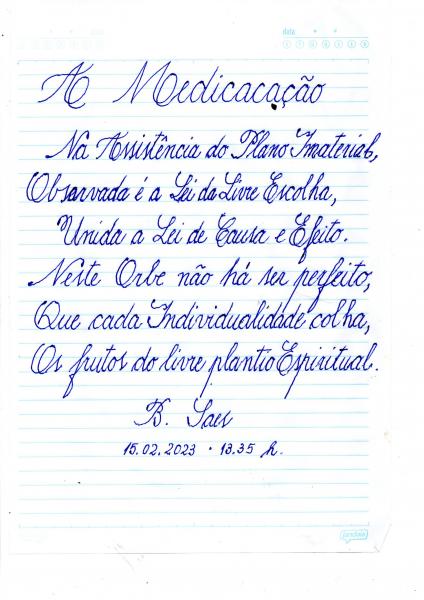 data
A Medicacação
Na Assistência do Plano Imaterial,
Observada é a Lei da Livre Escolha,
Unida a Lei de Causa e Efeito.
Neste Orbe não há ser perfeito,
Que cada Individualidade colha,
Os frutos do livre plantio Espiritual.
B. Saes
15.02.2023 • 13.35 h.
jandaia